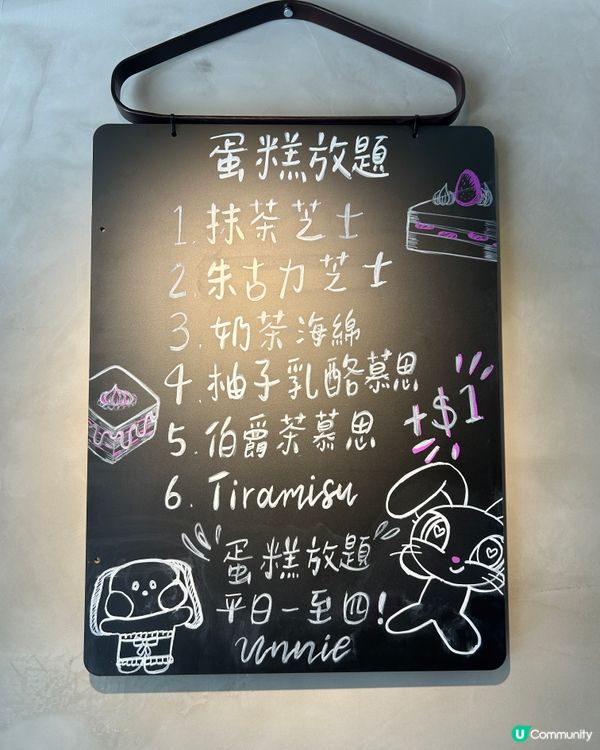 蛋糕放題
1. 抹茶芝士
2. 朱古力芝士
3. 奶茶海綿
4. 柚子乳酪慕思
5. 伯爵茶慕思
+$1
6. Tiramisu
蛋糕放題
平日一至四!
unnie
U Community